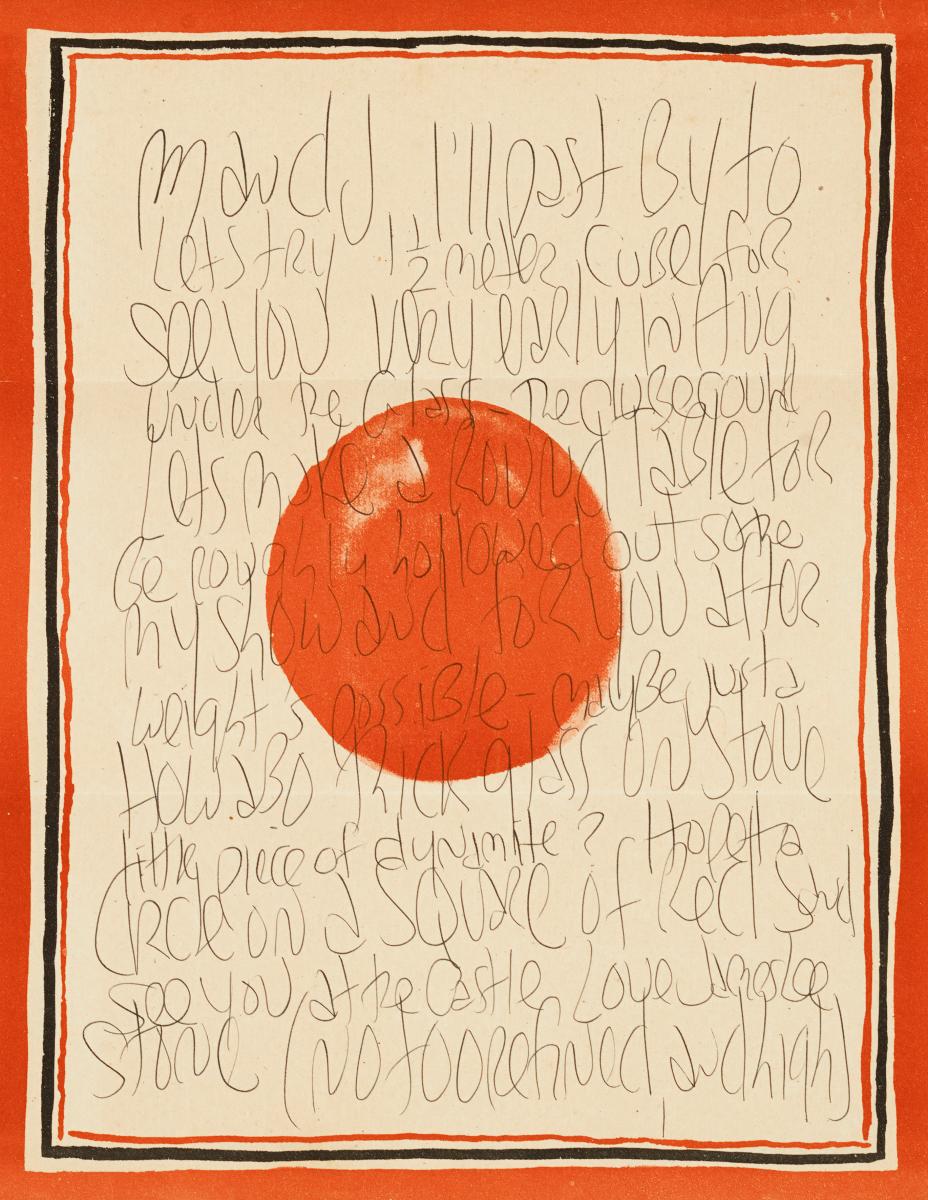 I'll past By to
Lets try 1 1/2 meter Cube for
see you very early in Aug
under the Glass - the cube could
Lets make a Round Table for
Be roughly hollowed out some
my show and for you after
weight's possible - maybe just a
How aBo thick glass on stone
little piece of dynamite? Hope to
Circle on a Square of Red Sand
see you at the Castle, Love Jameslee
stone (not too refined and high)